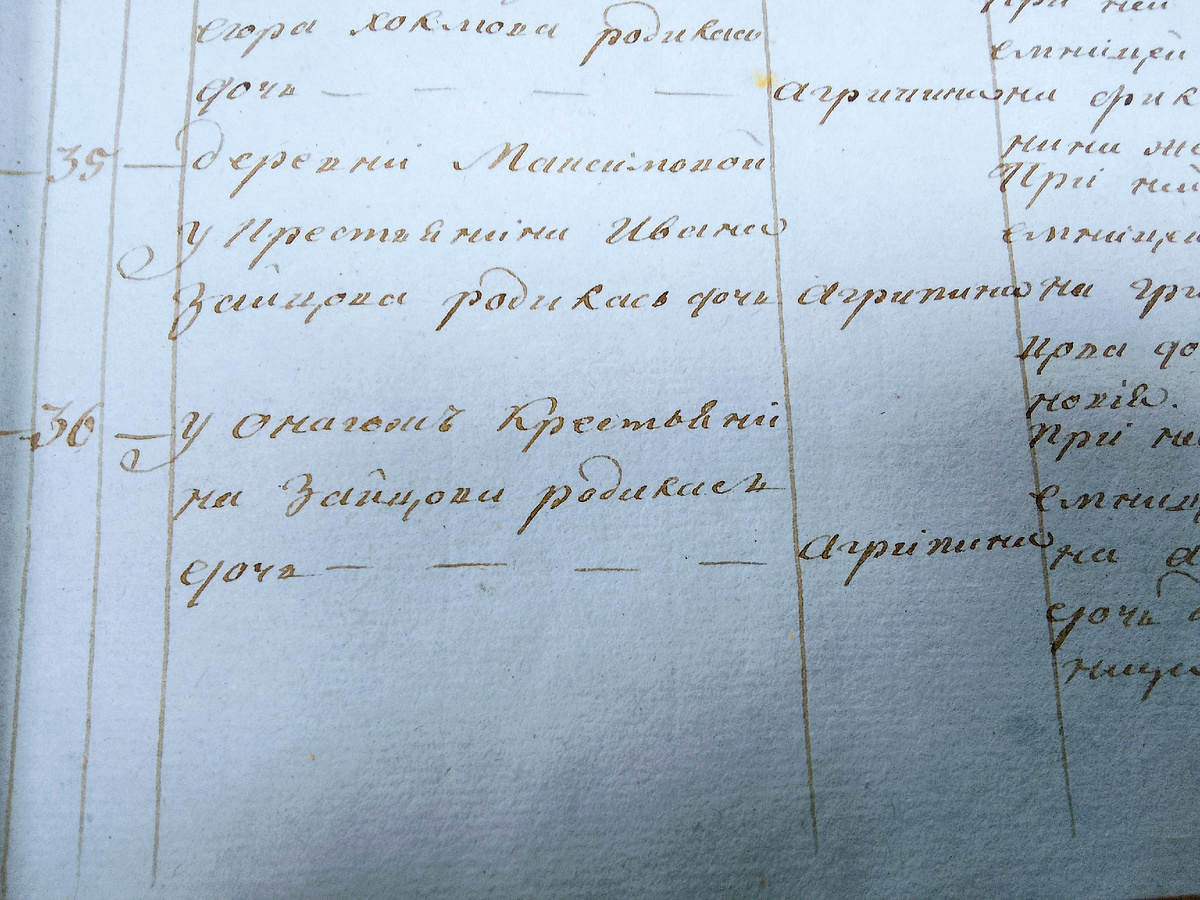 егора хокмова родилась
дочь — — — — Агрипина
35 — деревни Максимовой
у крестьянина Ивана
Зайцова родилась дочь Агрипина
36 — у онагожъ крестьяни
на Зайцова родилась
дочь — — — — Агрипина
При ней
емницей
на фик
нина же
При ней
емницей
на гри
до
новія.
При не
емниц
на а
дочь
ница